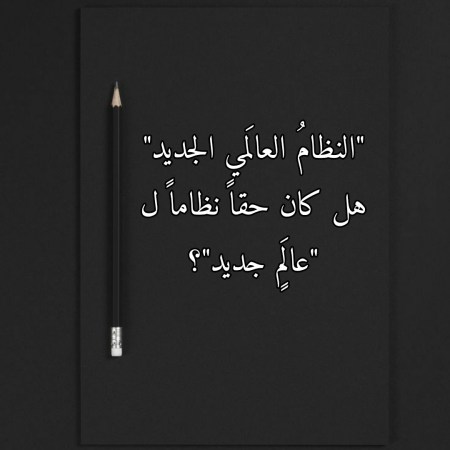 "النظامُ العالَمي الجديد"
هل كان حقاً نظاماً ل
"عالَمٍ جديد"؟